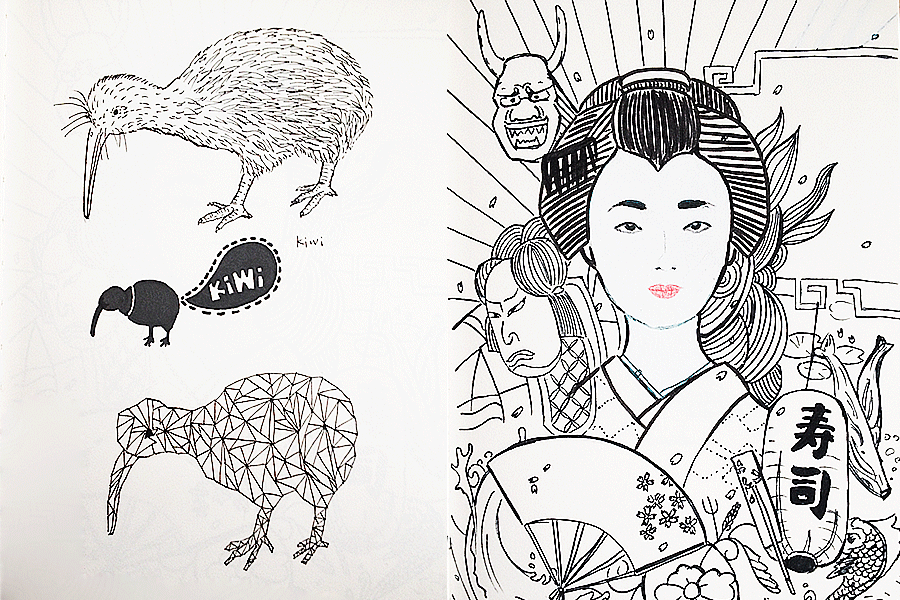 kiwi
KiWi
寿
司